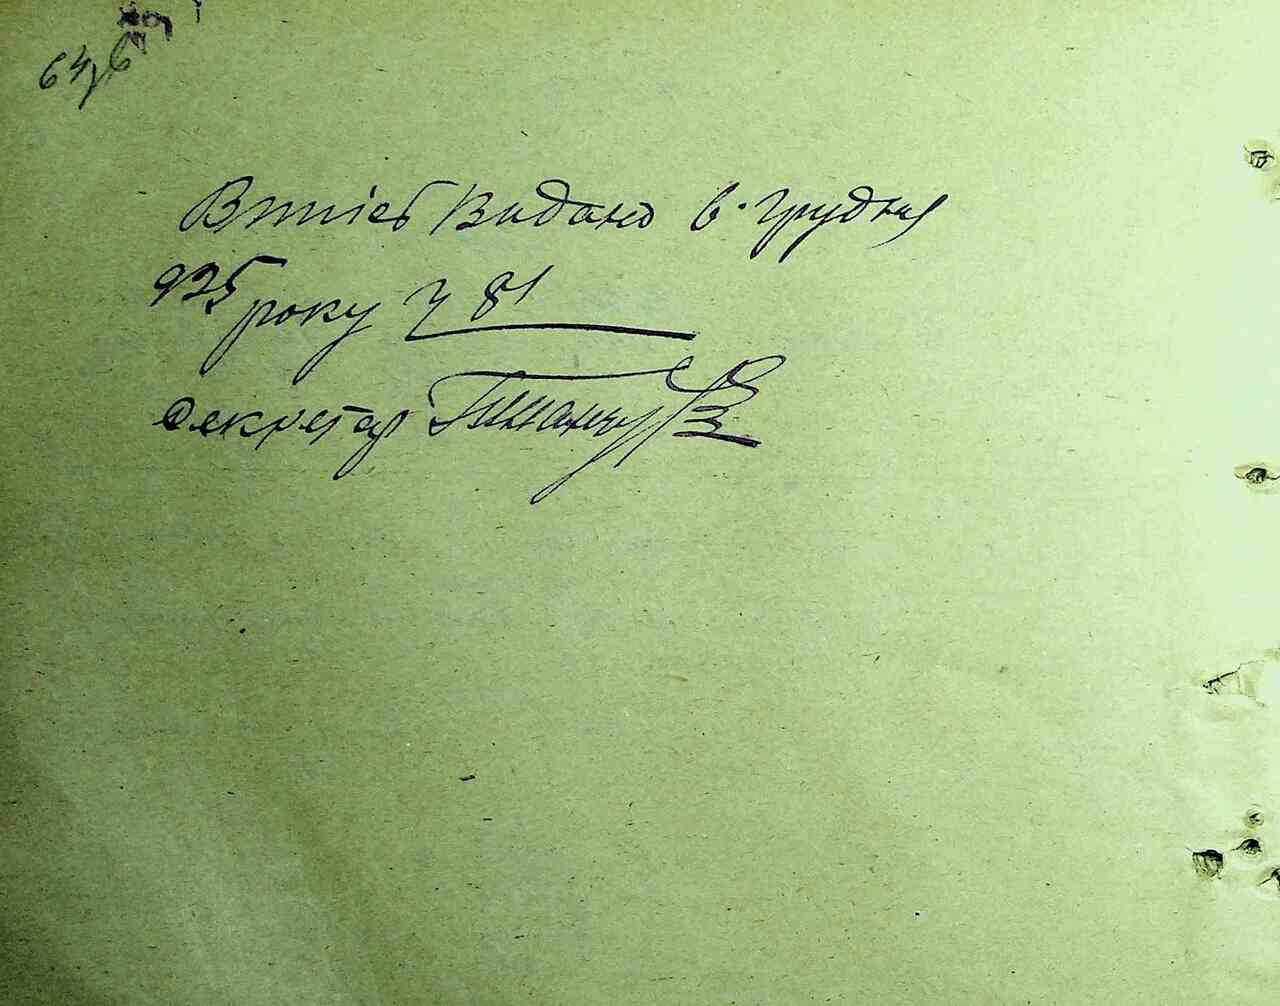 Випіс Видано 6. грудня
925 року ч 81
Секретар